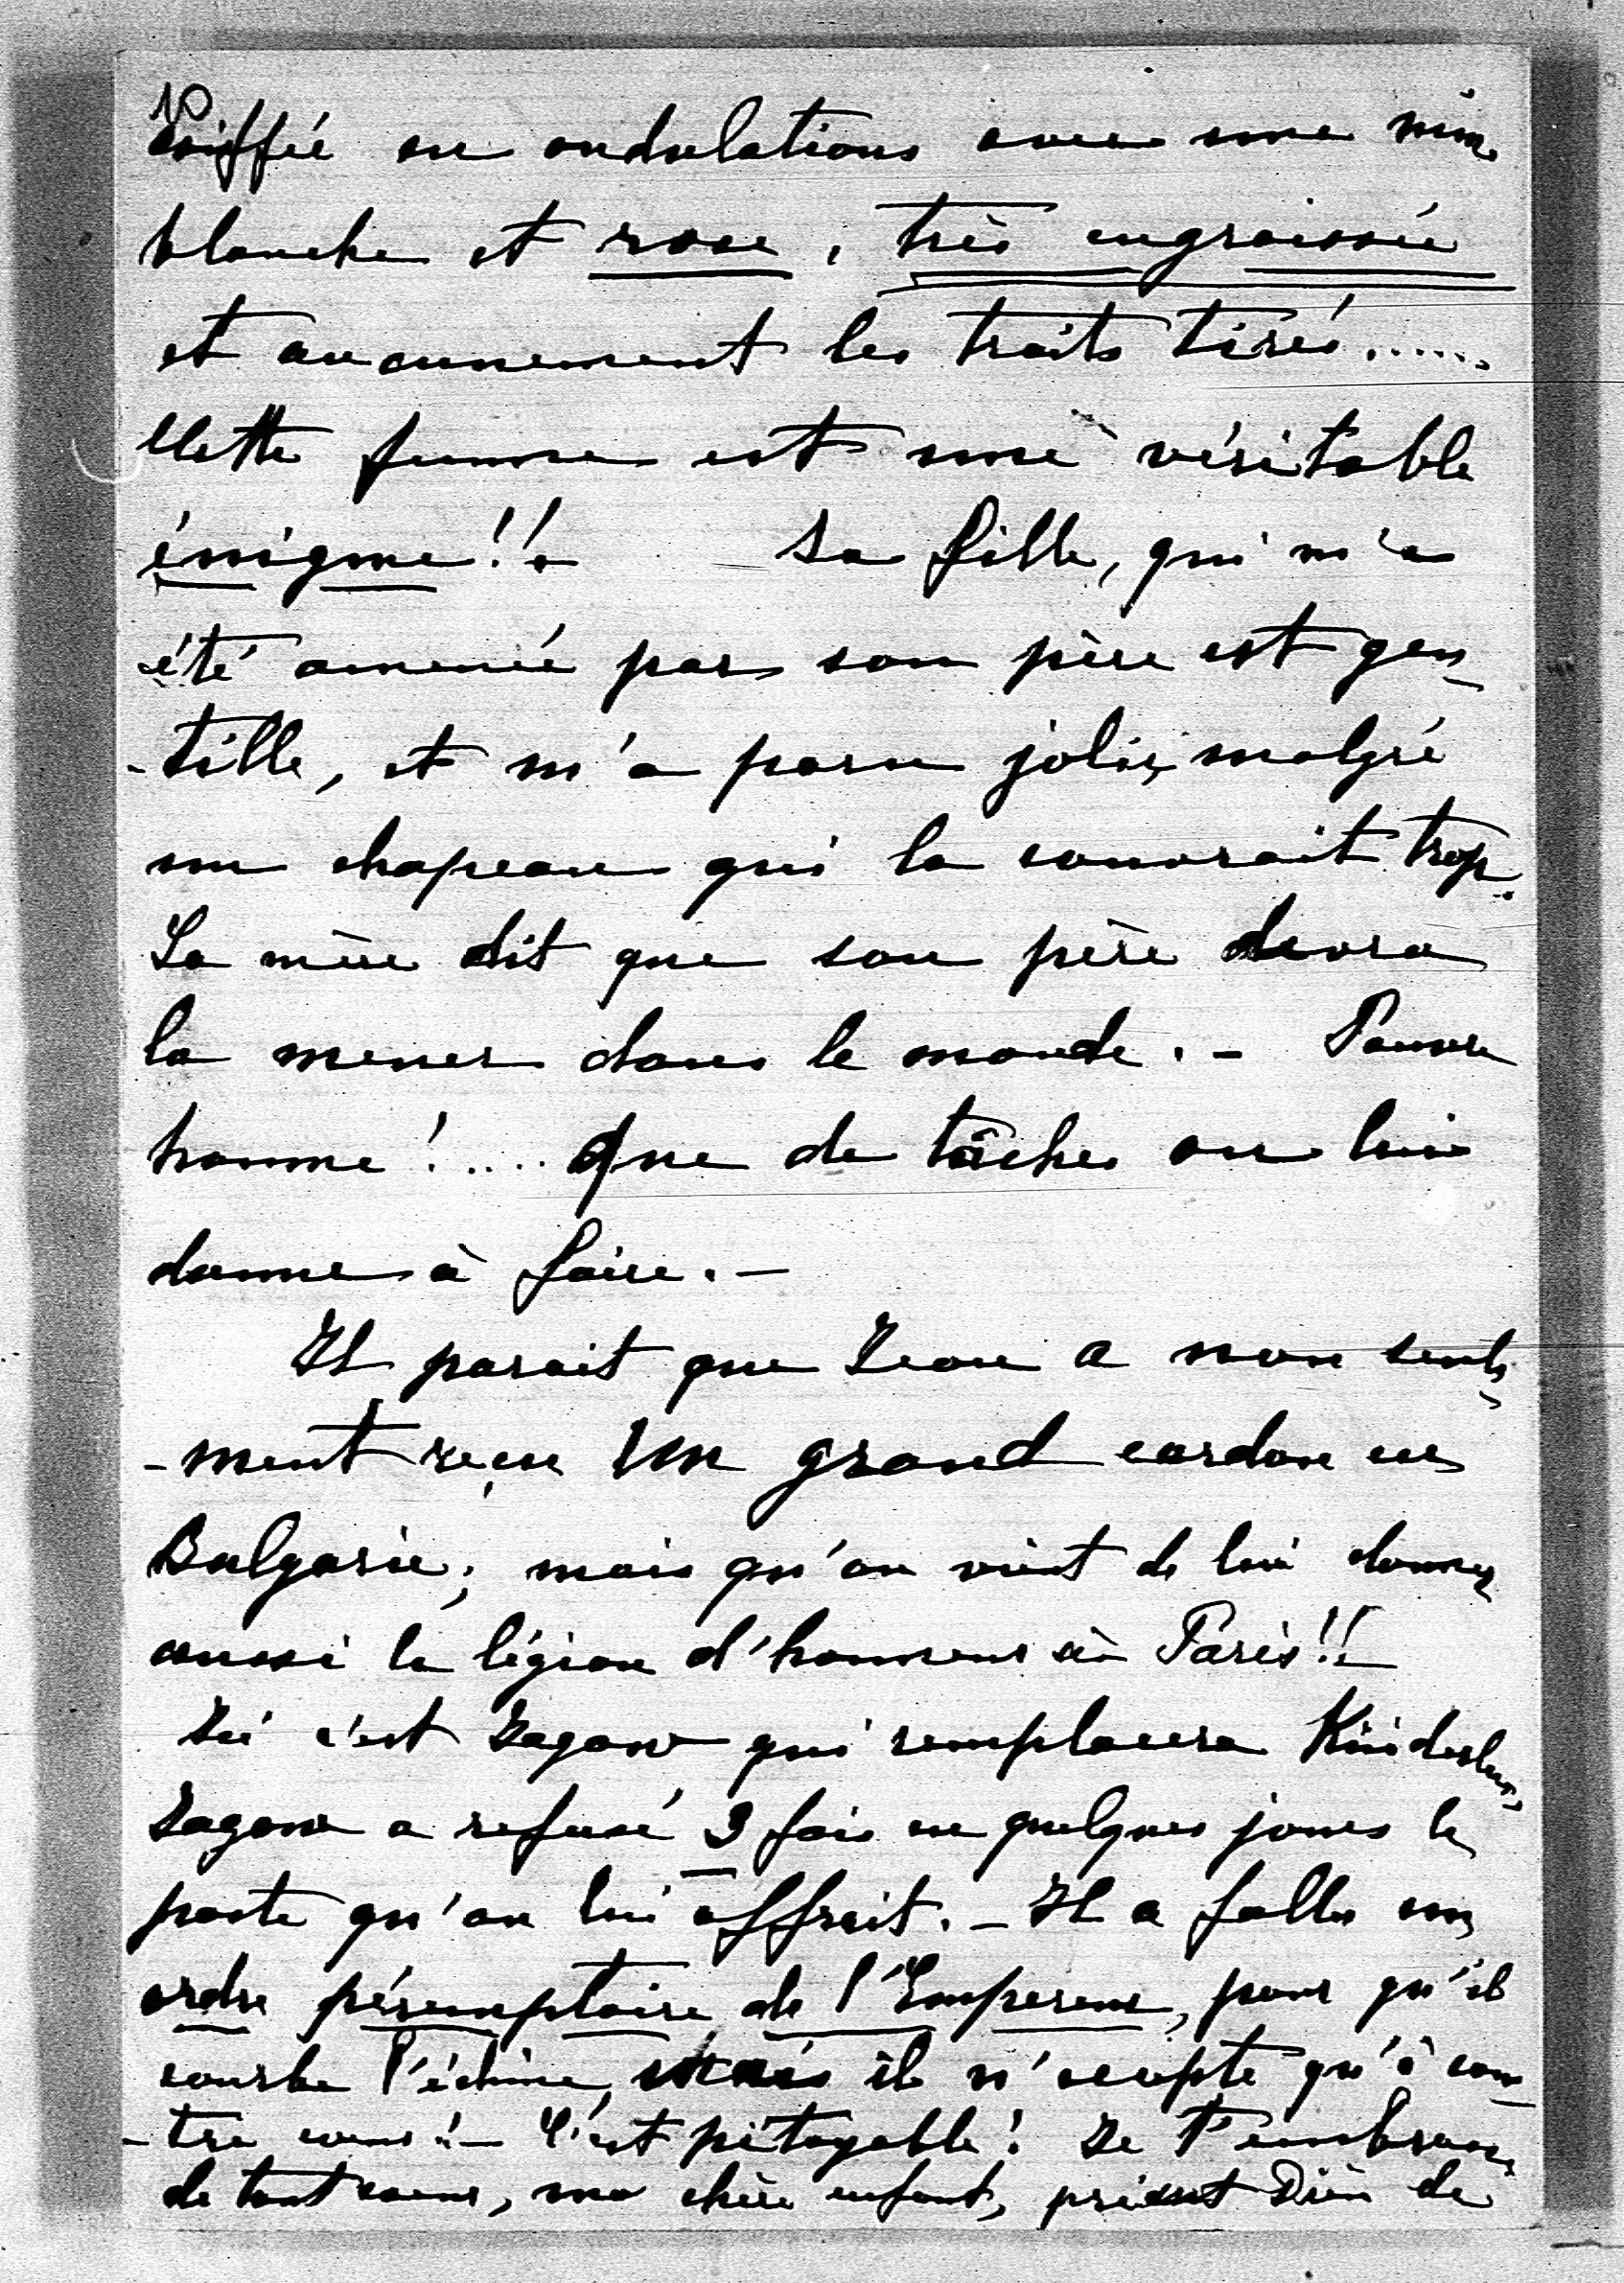 10
Coiffée en ondulations avec une mine
blanche et rose, très engraissée
et aucunement les traits tirés......
Cette femme est une véritable
énigme!! Sa fille, qui m'a
été amenée par son père est gen-
-tille, et m'a paru jolie, malgré
un chapeau qui la couvrait trop.
La mère dit que son père devra
la mener dans le monde. - Pauvre
homme!.... Que de tâches on lui
donne à faire. -
Il parait que Leon a non seule-
-ment reçu un grand cordon en
Bulgarie; mais qu'on vient de lui donner
aussi la légion d'honneur à Paris!!
Ici c'est Jagow qui remplacera Kiderlen,
Jagow a refusé 3 fois en quelques jours le
poste qu'on lui offrait. - Il a fallu un
ordre péremptoire de l'Empereur, pour qu'il
courbe l'échine, mais il n'accepte qu'à con-
-tre coeur! - C'est pitoyable! Je t'embrasse
de tout coeur, ma chère enfant, priant Dieu de